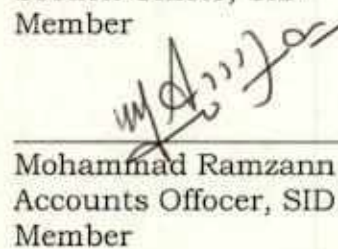 Member
Mohammad Ramzann
Accounts Offocer, SID
Member